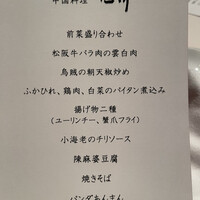 中国料理
前菜盛り合わせ
松阪牛バラ肉の雲白肉
烏賊の朝天椒炒め
ふかひれ、鶏肉、白菜のパイタン煮込み
揚げ物二種
(ユーリンチー、蟹爪フライ)
小海老のチリソース
陳麻婆豆腐
焼きそば
パンダあんまん